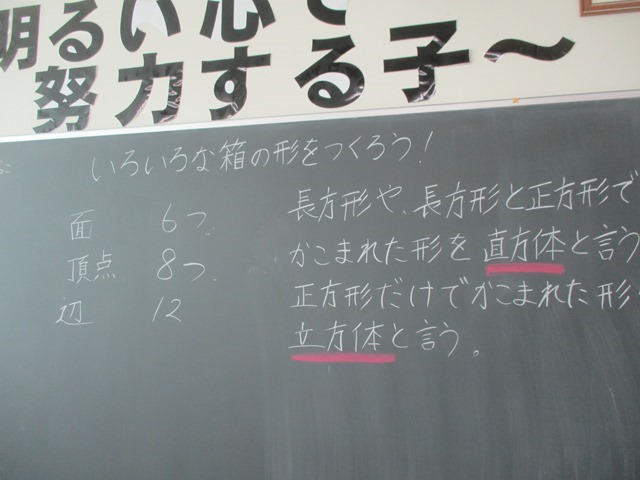 明るい心で
努力する子～
いろいろな箱の形をつくろう!
面 6つ
頂点 8つ
辺 12
長方形や、長方形と正方形で
かこまれた形を直方体と言う
正方形だけでかこまれた形
立方体と言う。